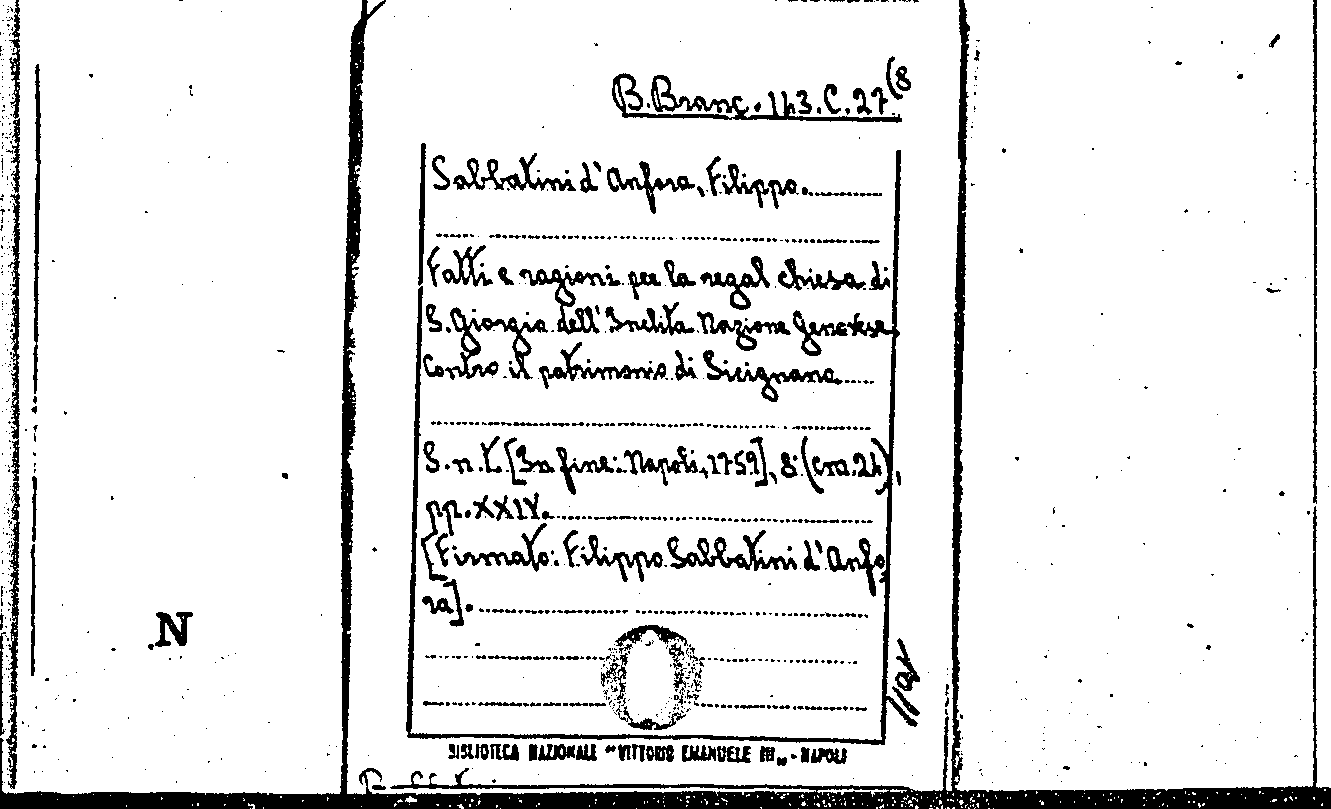 B.Branc. 143.C.27(8
Sabbatini d'Anfora, Filippo.
Fatti e ragioni per la regal chiesa di
S.Giorgio dell'Inclita Nazione Genovese
contro il patrimonio di Sicignano
S.n.t.[In fine: Napoli, 1759], 8°(cm.24),
pp.XXIV.
[Firmato: Filippo Sabbatini d'Anfo-
ra].
N
BIBLIOTECA NAZIONALE "VITTORIO EMANUELE III" - NAPOLI